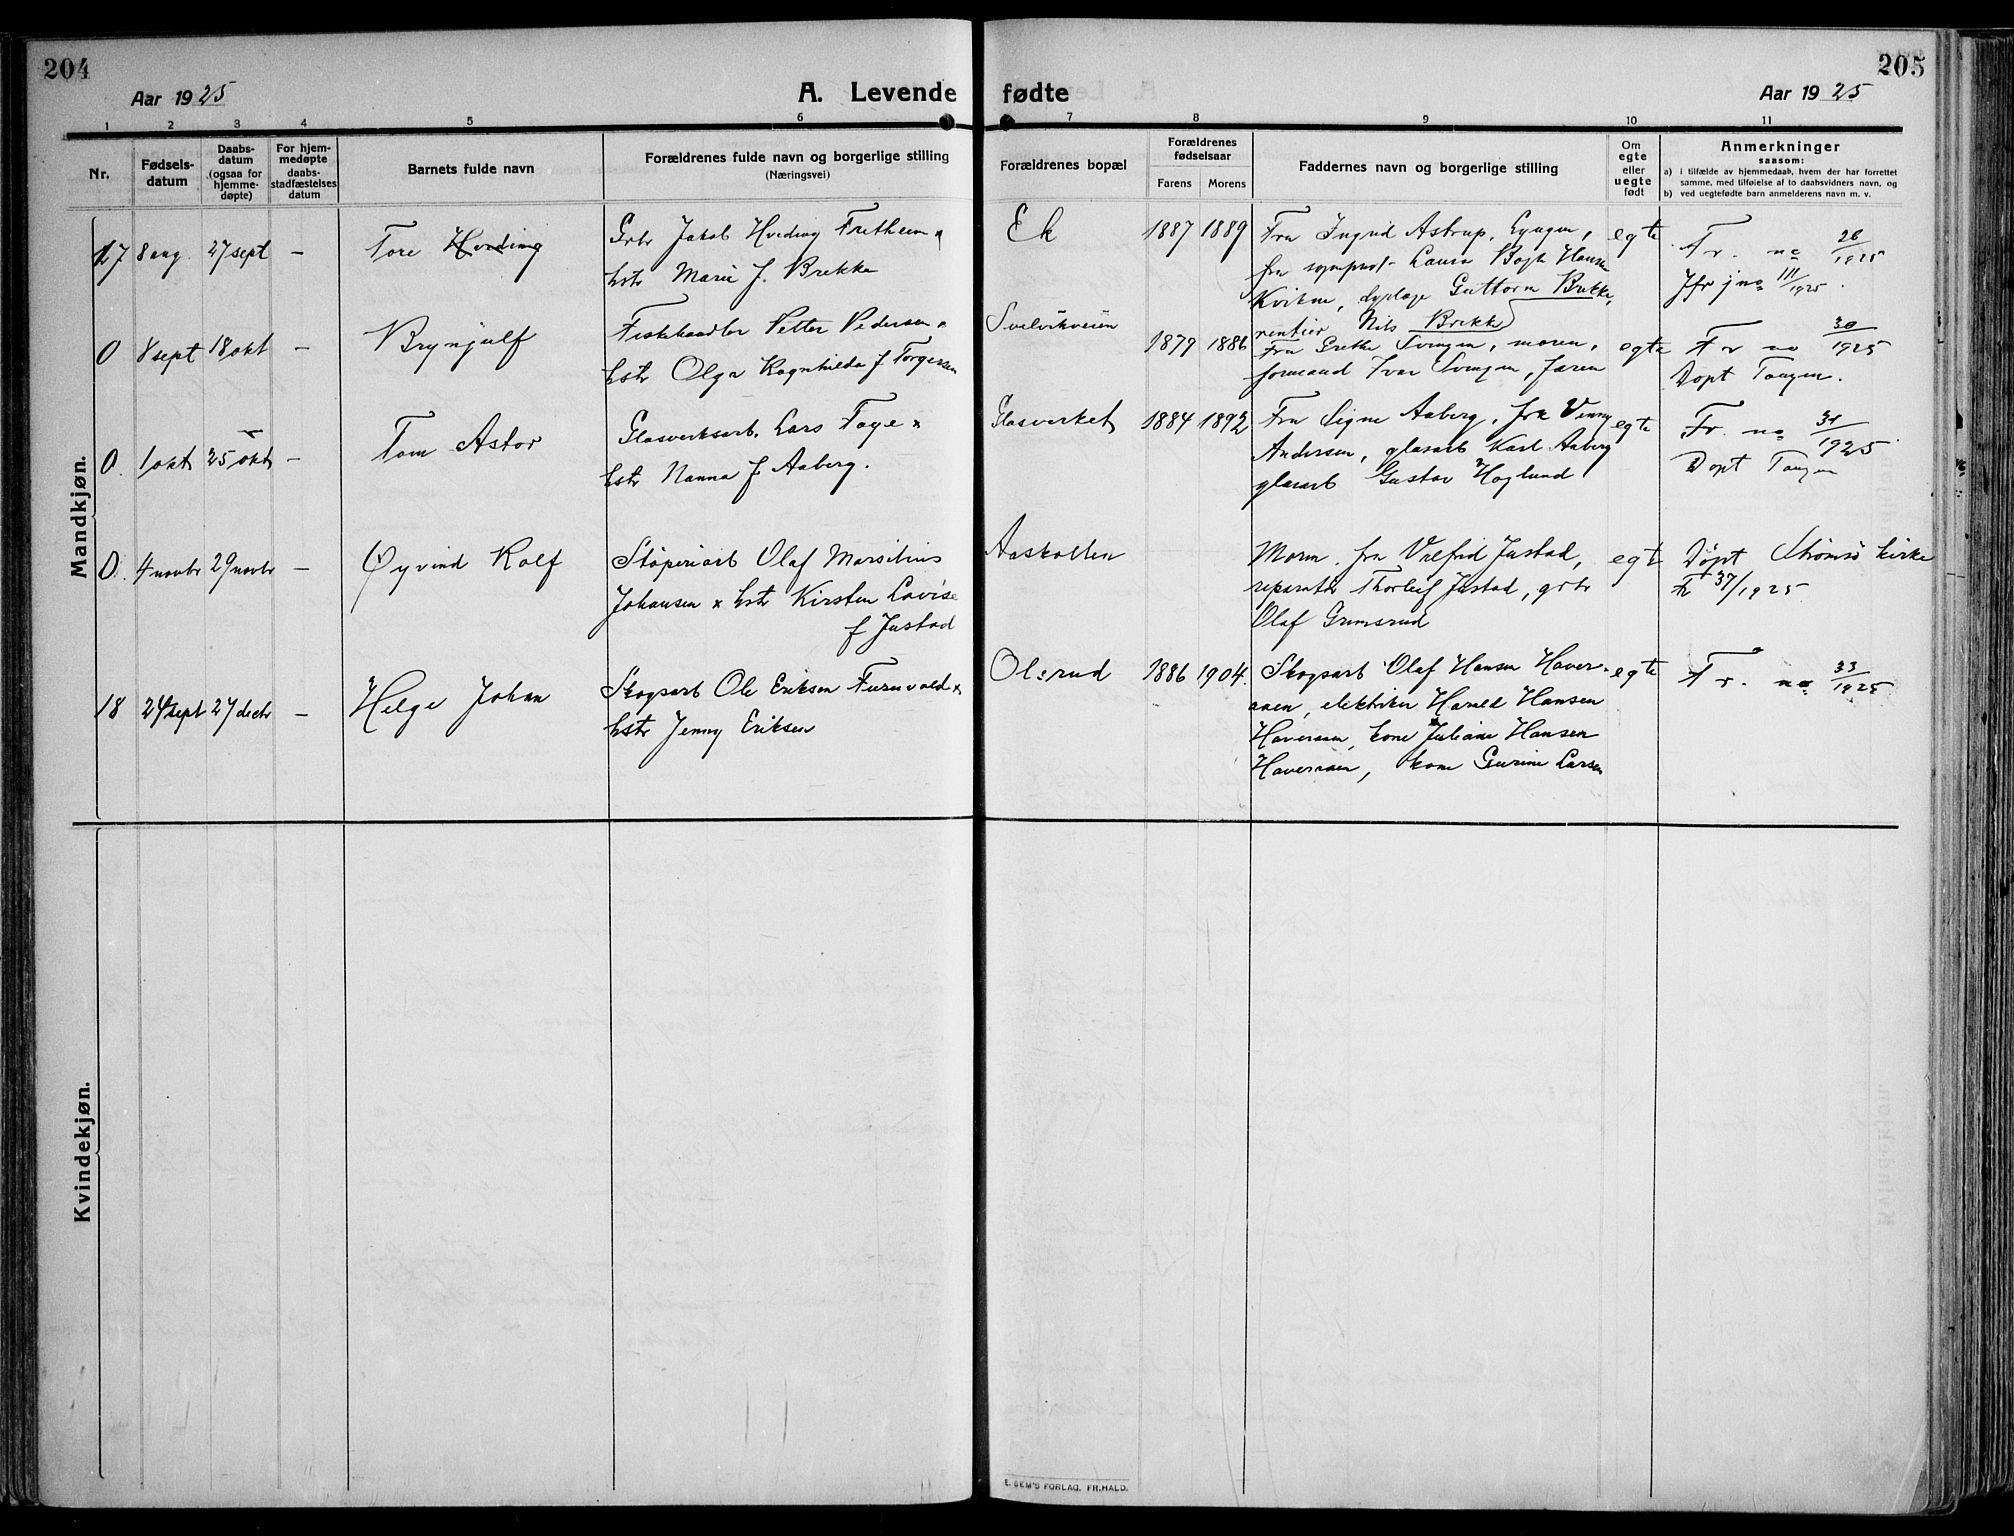 204
205
Aar 1925
A. Levende fødte
Aar 1925
1 2 3 4 5 6 7 8 9 10 11
Nr.
Fødsels-
datum
Daabs-
datum
(ogsaa for
hjemme-
døpte)
For hjem-
medøpte
daabs-
stadfæstelses
datum
Barnets fulde navn
Forældrenes fulde navn og borgerlige stilling
(Næringsvei)
Forældrenes bopæl
Forældrenes
fødselsaar
Farens Morens
Faddernes navn og borgerlige stilling
Om
egte
eller
uegte
født
Anmerkninger
saasom:
a) i tilfælde av hjemmedaab, hvem der har forrettet
samme, med tilføielse af to daabsvidners navn, og
b) ved uegtefødte barn anmelderens navn m. v.
Mandkjøn.
17 8 aug. 27 sept – Tore Hveding
Grbr Jakob Hveding Fretheim *
hstr Marie f. Brekke
Ek 1887 1889
Fru Ingrid Astrup,
fru Laura Bogh Hansen
Kvikne, dyrlæge Guttorm Brekke,
rentier Nils Brekke
egte
Fr. no 26/1925
Jfr jno 111/1925.
0 8 sept 18 okt – Brynjulf
Fiskehandler Petter Pedersen *
hstr Olga Ragnhilda f Torgersen
Svelvikveien 1879 1886
Fru Grethe Svingen, moren,
formand Ivar Svingen, faren
egte
Fr no 30/1925
Døpt Tangen.
0. 1 okt 25 okt – Tom Astor
Glasverksarb. Lars Foye *
hstr Nanna f. Aaberg.
Glasverket 1884 1892
Fru Signe Aaberg, fru Venny
Andersen, glasarb Karl Aaberg
glasarb Gustav Hoglund
egte
Fr. no 31/1925
Døpt Tangen
0. 4 novbr 29 novbr – Øyvind Rolf
Støperiarb Olaf Marsilius
Johansen * hstr Kirsten Lovise
f Justad
Aaskollen
Moren. fru Valfrid Justad,
reparatør Thorleif Justad, grbr
Olaf Grimsrud
egt
Døpt Strømsø kirke
Fr 37/1925
18 24 sept 27 decbr – Helge Johan
Skogsarb Ole Eriksen Furuvald *
hstr Jenny Eriksen
Olsrud 1886 1904.
Skogsarb Olaf Hansen Haver-
aaen, elektriker Harald Hansen
Haveraaen, kone Juliane Hansen
Haveraaen, kone Gurine Larsen
egte
Fr. no 33/1925
Kvindekjøn.
E. SEM'S FORLAG, FR.HALD.